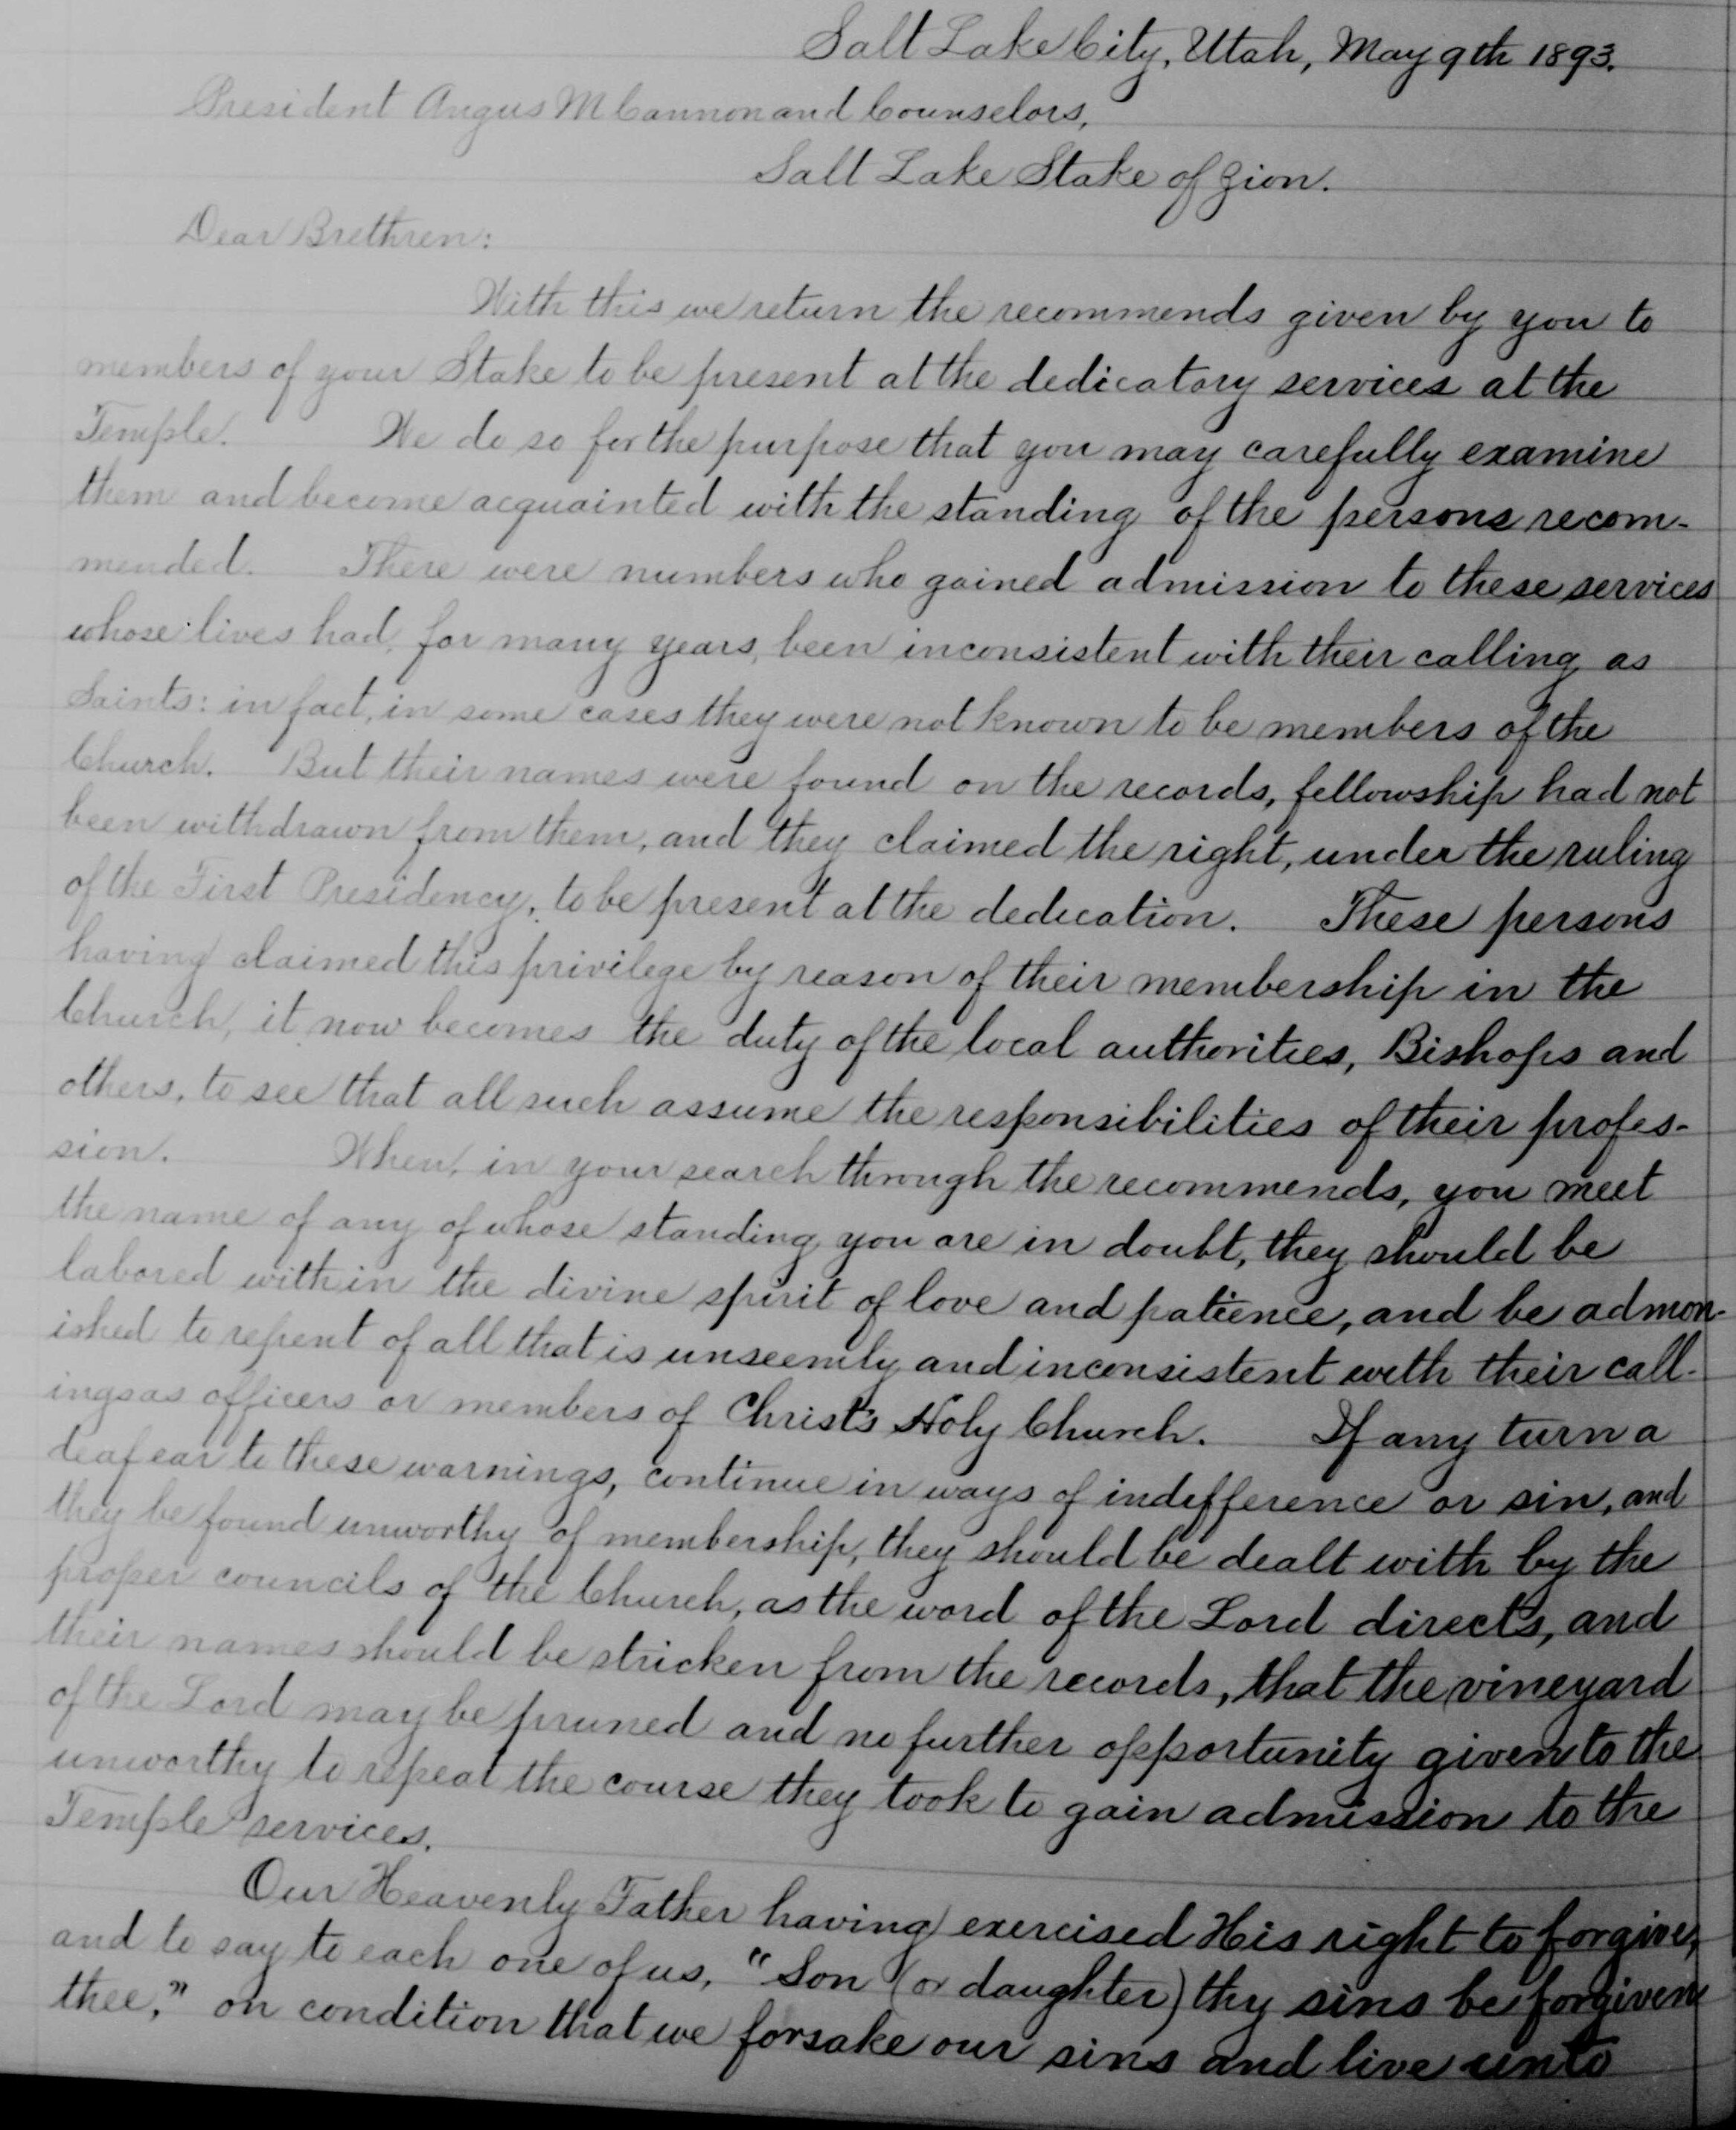 Salt Lake City, Utah, May 9th 1893.
President Angus M Cannon and Counselors,
Salt Lake Stake of Zion.
Dear Brethren:
With this we return the recommends given by you to
members of your Stake to be present at the dedicatory services at the
Temple. We do so for the purpose that you may carefully examine
them and become acquainted with the standing of the persons recom-
mended. There were numbers who gained admission to these services
whose lives had, for many years, been inconsistent with their calling as
Saints: in fact, in some cases they were not known to be members of the
Church. But their names were found on the records, fellowship had not
been withdrawn from them, and they claimed the right, under the ruling
of the First Presidency, to be present at the dedication. These persons
having claimed this privilege by reason of their membership in the
Church, it now becomes the duty of the local authorities, Bishops and
others, to see that all such assume the responsibilities of their profes-
sion. When, in your search through the recommends, you meet
the name of any of whose standing you are in doubt, they should be
labored with in the divine spirit of love and patience, and be admon-
ished to repent of all that is unseemly and inconsistent with their call-
ings as officers or members of Christ's Holy Church. If any turn a
deaf ear to these warnings, continue in ways of indifference or sin, and
they be found unworthy of membership, they should be dealt with by the
proper councils of the Church, as the word of the Lord directs, and
their names should be stricken from the records, that the vineyard
of the Lord may be pruned and no further opportunity given to the
unworthy to repeat the course they took to gain admission to the
Temple services.
Our Heavenly Father having exercised His right to forgive,
and to say to each one of us, "Son (or daughter) thy sins be forgiven
thee," on condition that we forsake our sins and live unto